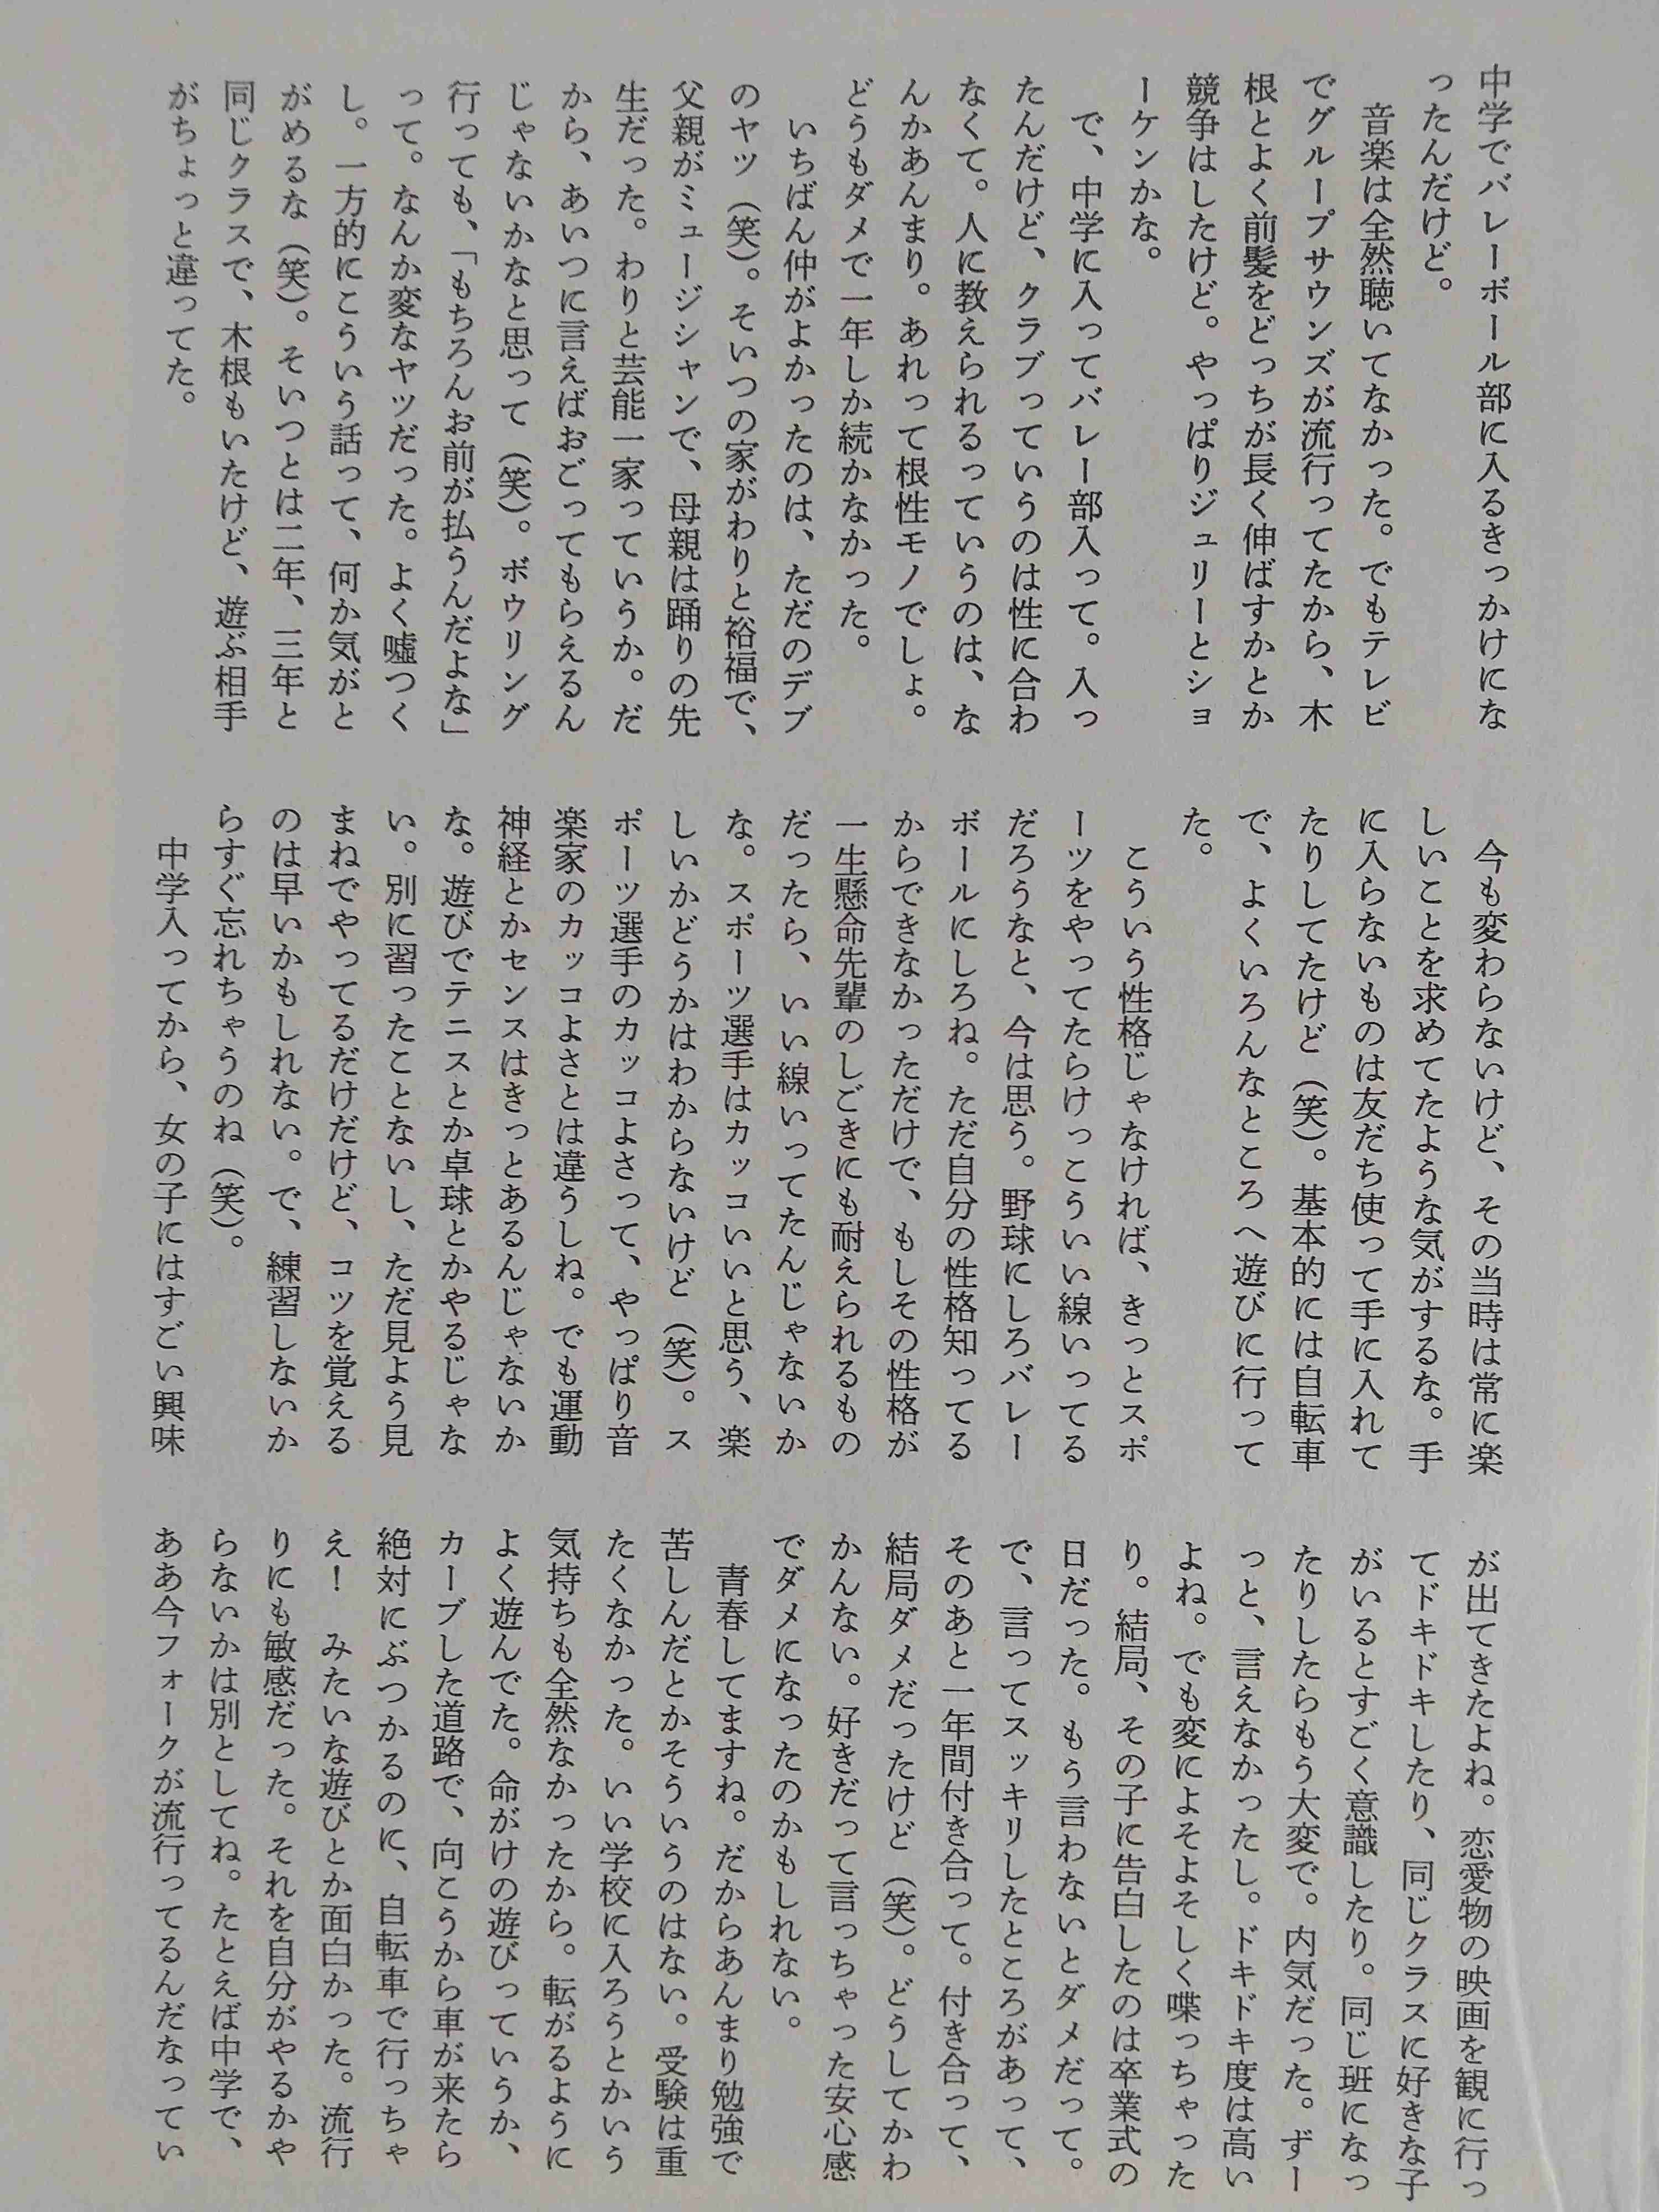 中学でバレーボール部に入るきっかけにな
ったんだけど。
音楽は全然聴いてなかった。でもテレビ
でグループサウンズが流行ってたから、木
根とよく前髪をどっちが長く伸ばすかとか
競争はしたけど。やっぱりジュリーとショ
ーケンかな。
で、中学に入ってバレー部入って。入っ
たんだけど、クラブっていうのは性に合わ
なくて。人に教えられるっていうのは、な
んかあんまり。あれって根性モノでしょ。
どうもダメで一年しか続かなかった。
いちばん仲がよかったのは、ただのデブ
のヤツ（笑）。そいつの家がわりと裕福で、
父親がミュージシャンで、母親は踊りの先
生だった。わりと芸能一家っていうか。だ
から、あいつに言えばおごってもらえるん
じゃないかなと思って（笑）。ボウリング
行っても、「もちろんお前が払うんだよな」
って。なんか変なヤツだった。よく嘘つく
し。一方的にこういう話って、何か気がと
がめるな（笑）。そいつとは二年、三年と
同じクラスで、木根もいたけど、遊ぶ相手
がちょっと違ってた。
今も変わらないけど、その当時は常に楽
しいことを求めてたような気がするな。手
に入らないものは友だち使って手に入れて
たりしてたけど（笑）。基本的には自転車
で、よくいろんなところへ遊びに行って
た。
こういう性格じゃなければ、きっとスポ
ーツをやってたらけっこういい線いってる
だろうなと、今は思う。野球にしろバレー
ボールにしろね。ただ自分の性格知ってる
からできなかっただけで、もしその性格が
一生懸命先輩のしごきにも耐えられるもの
だったら、いい線いってたんじゃないか
な。スポーツ選手はカッコいいと思う、楽
しいかどうかはわからないけど（笑）。ス
ポーツ選手のカッコよさって、やっぱり音
楽家のカッコよさとは違うしね。でも運動
神経とかセンスはきっとあるんじゃないか
な。遊びでテニスとか卓球とかやるじゃな
い。別に習ったことないし、ただ見よう見
まねでやってるだけだけど、コツを覚える
のは早いかもしれない。で、練習しないか
らすぐ忘れちゃうのね（笑）。
中学入ってから、女の子にはすごい興味
が出てきたよね。恋愛物の映画を観に行っ
てドキドキしたり、同じクラスに好きな子
がいるとすごく意識したり。同じ班になっ
たりしたらもう大変で。内気だった。ずー
っと、言えなかったし。ドキドキ度は高い
よね。でも変によそよそしく喋っちゃった
り。結局、その子に告白したのは卒業式の
日だった。もう言わないとダメだって。
で、言ってスッキリしたところがあって、
そのあと一年間付き合って。付き合って、
結局ダメだったけど（笑）。どうしてかわ
かんない。好きだって言っちゃった安心感
でダメになったのかもしれない。
青春してますね。だからあんまり勉強で
苦しんだとかそういうのはない。受験は重
たくなかった。いい学校に入ろうとかいう
気持ちも全然なかったから。転がるように
よく遊んでた。命がけの遊びっていうか、
カーブした道路で、向こうから車が来たら
絶対にぶつかるのに、自転車で行っちゃ
え！　みたいな遊びとか面白かった。流行
りにも敏感だった。それを自分がやるかや
らないかは別としてね。たとえば中学で、
ああ今フォークが流行ってるんだなってい